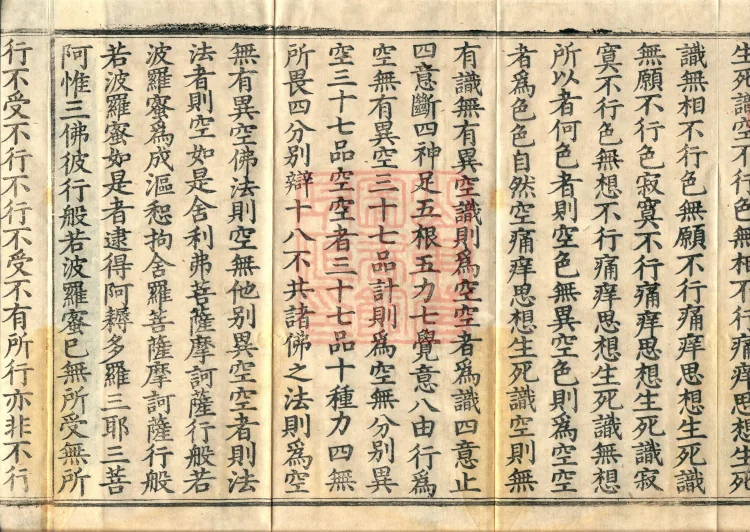 生死識空不行色無相不行痛痒思想生死
識無相不行色無願不行痛痒思想生死識
無願不行色寂寞不行痛痒思想生死識寂
寞不行色無想不行痛痒思想生死識無想
所以者何色者則空色無異空色則爲空空
者爲色色自然空痛痒思想生死識空則無
有識無有異空識則爲空空者爲識四意止
四意斷四神足五根五力七覺意八由行爲
空無有異空三十七品計則爲空無分別異
空三十七品空空者三十七品十種力四無
所畏四分別辯十八不共諸佛之法則爲空
無有異空佛法則空無他別異空空者則法
法者則空如是舍利弗菩薩摩訶薩行般若
波羅蜜爲成漚惒拘舍羅菩薩摩訶薩行般
若波羅蜜如是者逮得阿耨多羅三耶三菩
阿惟三佛彼行般若波羅蜜已無所受無所
行不受不行不行不受不有所行亦非不行